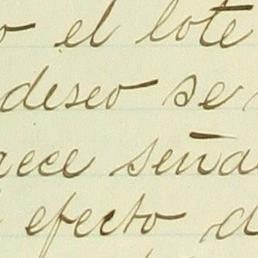 o el lote
deseo se
rece seña
efecto d